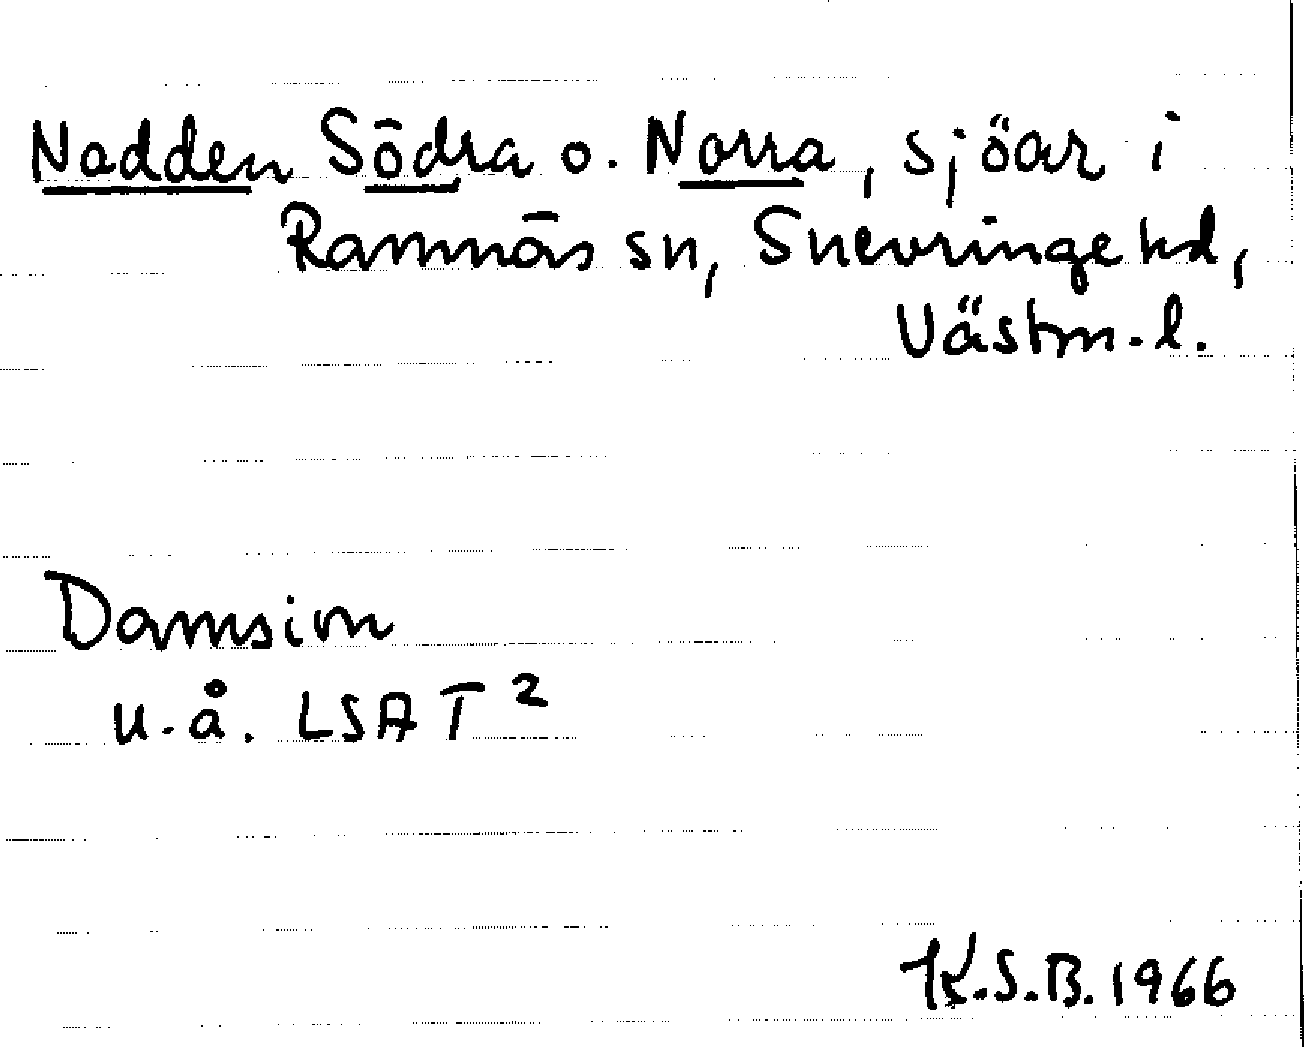 Nadden Södra o. Norra, sjöar i
Ramnäs sn, Snevringe hd,
Västm. l.
Damsion
u. å. LSA T²
K.S.B. 1966